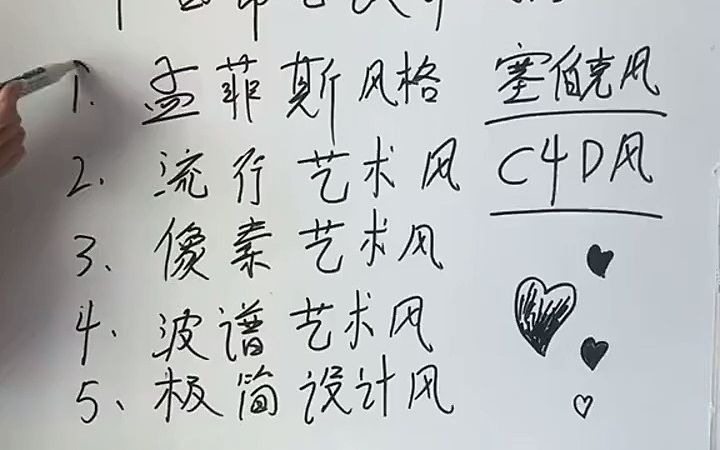 1. 孟菲斯风格 塞伯克风
2. 流行艺术风 C4D风
3、像素艺术风
4、波谱艺术风
5、极简设计风